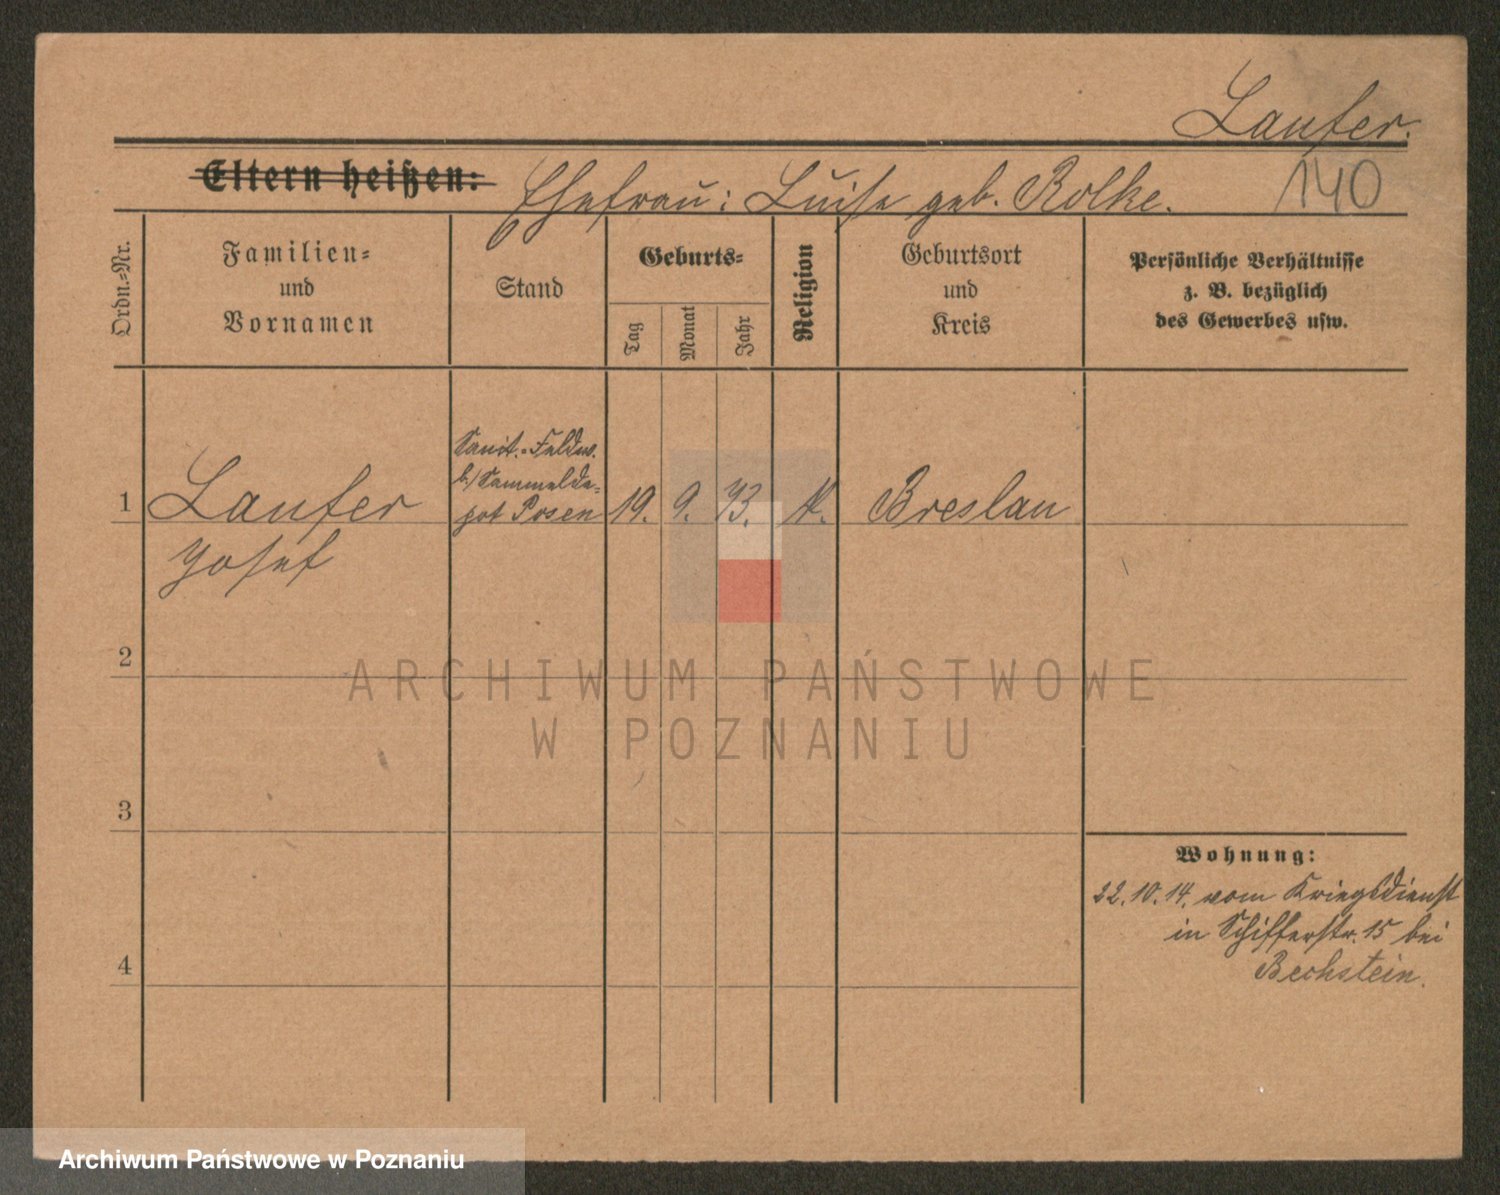 Laufer.
140
Eltern heißen: Ehefrau: Luise geb. Rolke.
Ordn.-Nr.
Familien-
und
Vornamen
Stand
Geburts-
Tag
Monat
Jahr
Religion
Geburtsort
und
Kreis
Persönliche Verhältnisse
z. B. bezüglich
des Gewerbes usw.
Sanit.-Feldw.
b/ Sammelde-
pot Posen
1
Laufer
Josef
19.
9.
73.
K.
Breslau
2
3
4
Wohnung:
22.10.14. vom Kriegsdienst
in Schifferstr. 15 bei
Bechstein.
ARCHIWUM PAŃSTWOWE
W POZNANIU
Archiwum Państwowe w Poznaniu